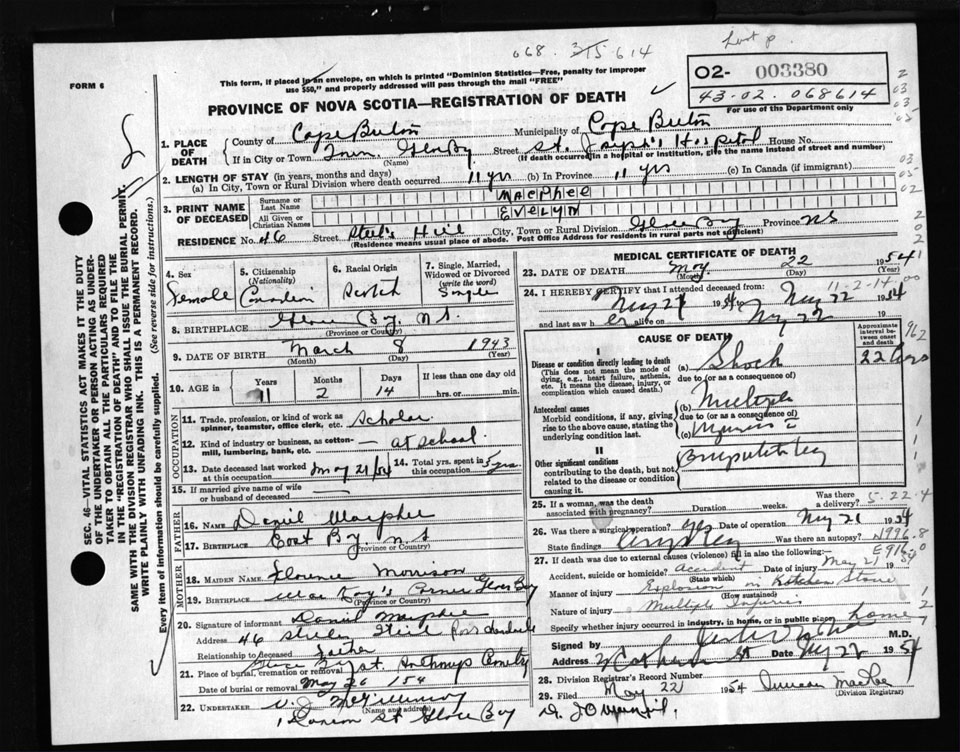 068. 315 614
FORM 6
This form, if placed in an envelope, on which is printed "Dominion Statistics—Free, penalty for improper
use $50," and properly addressed will pass through the mail "FREE"
O2- 003380
43-02. 068614
For use of the Department only
PROVINCE OF NOVA SCOTIA—REGISTRATION OF DEATH
1. PLACE OF DEATH
County of Cape Breton Municipality of Cape Breton
If in City or Town Town Glace Bay (Name) Street St. Joseph's Hospital House No.
(If death occurred in a hospital or institution, give the name instead of street and number)
2. LENGTH OF STAY (in years, months and days)
(a) In City, Town or Rural Division where death occurred 11 yrs (b) In Province 11 yrs (c) In Canada (if immigrant)
3. PRINT NAME OF DECEASED
Surname or Last Name MACPHEE
All Given or Christian Names EVELYN
RESIDENCE No. 46 Street Steel's Hill City, Town or Rural Division Glace Bay Province NS
(Residence means usual place of abode. Post Office Address for residents in rural parts not sufficient)
4. Sex Female
5. Citizenship (Nationality) Canadian
6. Racial Origin Scotch
7. Single, Married, Widowed or Divorced (write the word) Single
8. BIRTHPLACE Glace Bay, N.S. (Province or Country)
9. DATE OF BIRTH March (Month) 8 (Day) 1943 (Year)
10. AGE in Years 11 Months 2 Days 14 If less than one day old hrs. or min.
OCCUPATION
11. Trade, profession, or kind of work as spinner, teamster, office clerk, etc. Scholar
12. Kind of industry or business, as cotton-mill, lumbering, bank, etc. — at school
13. Date deceased last worked at this occupation May 21/54 14. Total yrs. spent in this occupation 5 yrs
15. If married give name of wife or husband of deceased
FATHER
16. NAME Daniel Macphee
17. BIRTHPLACE East Bay N.S (Province or Country)
MOTHER
18. MAIDEN NAME Florence Morrison
19. BIRTHPLACE MacKay's Corner Glace Bay (Province or Country)
20. Signature of informant Daniel Macphee
Address 46 Steeles Hill
Relationship to deceased Father
21. Place of burial, cremation or removal Glace Bay St. Anthonys Cemetery
Date of burial or removal May 26 154
22. UNDERTAKER V. J. McGillivray
(Name and address)
St Glace Bay
MEDICAL CERTIFICATE OF DEATH
23. DATE OF DEATH May (Month) 22 (Day) 1954 (Year)
11-2-14
24. I HEREBY CERTIFY that I attended deceased from:
May 21 1954 to May 22 1954
and last saw her alive on May 22
CAUSE OF DEATH
Approximate interval between onset and death
I
Disease or condition directly leading to death
(This does not mean the mode of dying, e.g., heart failure, asthenia, etc. It means the disease, injury, or complication which caused death.)
(a) Shock 22 hrs
due to (or as a consequence of)
Antecedent causes
Morbid conditions, if any, giving rise to the above cause, stating the underlying condition last.
(b) Multiple
due to (or as a consequence of)
(c) Injuries c
II
Other significant conditions
contributing to the death, but not related to the disease or condition causing it.
25. If a woman, was the death associated with pregnancy? Duration weeks. Was there a delivery?
5.22.4
26. Was there a surgical operation? yes Date of operation May 21 1954
State findings Was there an autopsy?
N996.8
E916.0
27. If death was due to external causes (violence) fill in also the following:—
Accident, suicide or homicide? Accident (State which) Date of injury May 21 1954
Manner of injury Explosion in Kitchen Stove (How sustained)
Nature of injury Multiple Injuries
Specify whether injury occurred in industry, in home, or in public place home
Signed by M.D.
Address St May 22 1954
28. Division Registrar's Record Number
29. Filed May 22 1954 Duncan MacRae (Division Registrar)
SEC. 46—VITAL STATISTICS ACT MAKES IT THE DUTY
OF THE UNDERTAKER OR PERSON ACTING AS UNDER-
TAKER TO OBTAIN ALL THE PARTICULARS REQUIRED
IN THE "REGISTRATION OF DEATH" AND TO FILE THE
SAME WITH THE DIVISION REGISTRAR WHO SHALL ISSUE THE BURIAL PERMIT.
WRITE PLAINLY WITH UNFADING INK. THIS IS A PERMANENT RECORD.
Every item of information should be carefully supplied. (See reverse side for instructions.)